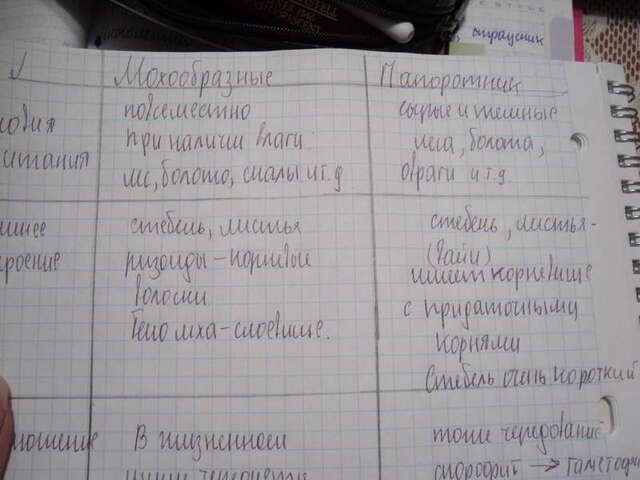 страусник
Мохообразные
Папоротник
повсеместно
при наличи влаги.
лес, болото, скалы и т.д
сырые и темные
леса, болота,
овраги и т.д.
стебель, листья
ризоиды - корневые
волоски
Тело мха - слоевище.
стебель, листья -
(вайи)
имеет корневище
с придаточными
корнями
Стебель очень короткий
В жизненном
тоже чередование
спорофит → гаметофи